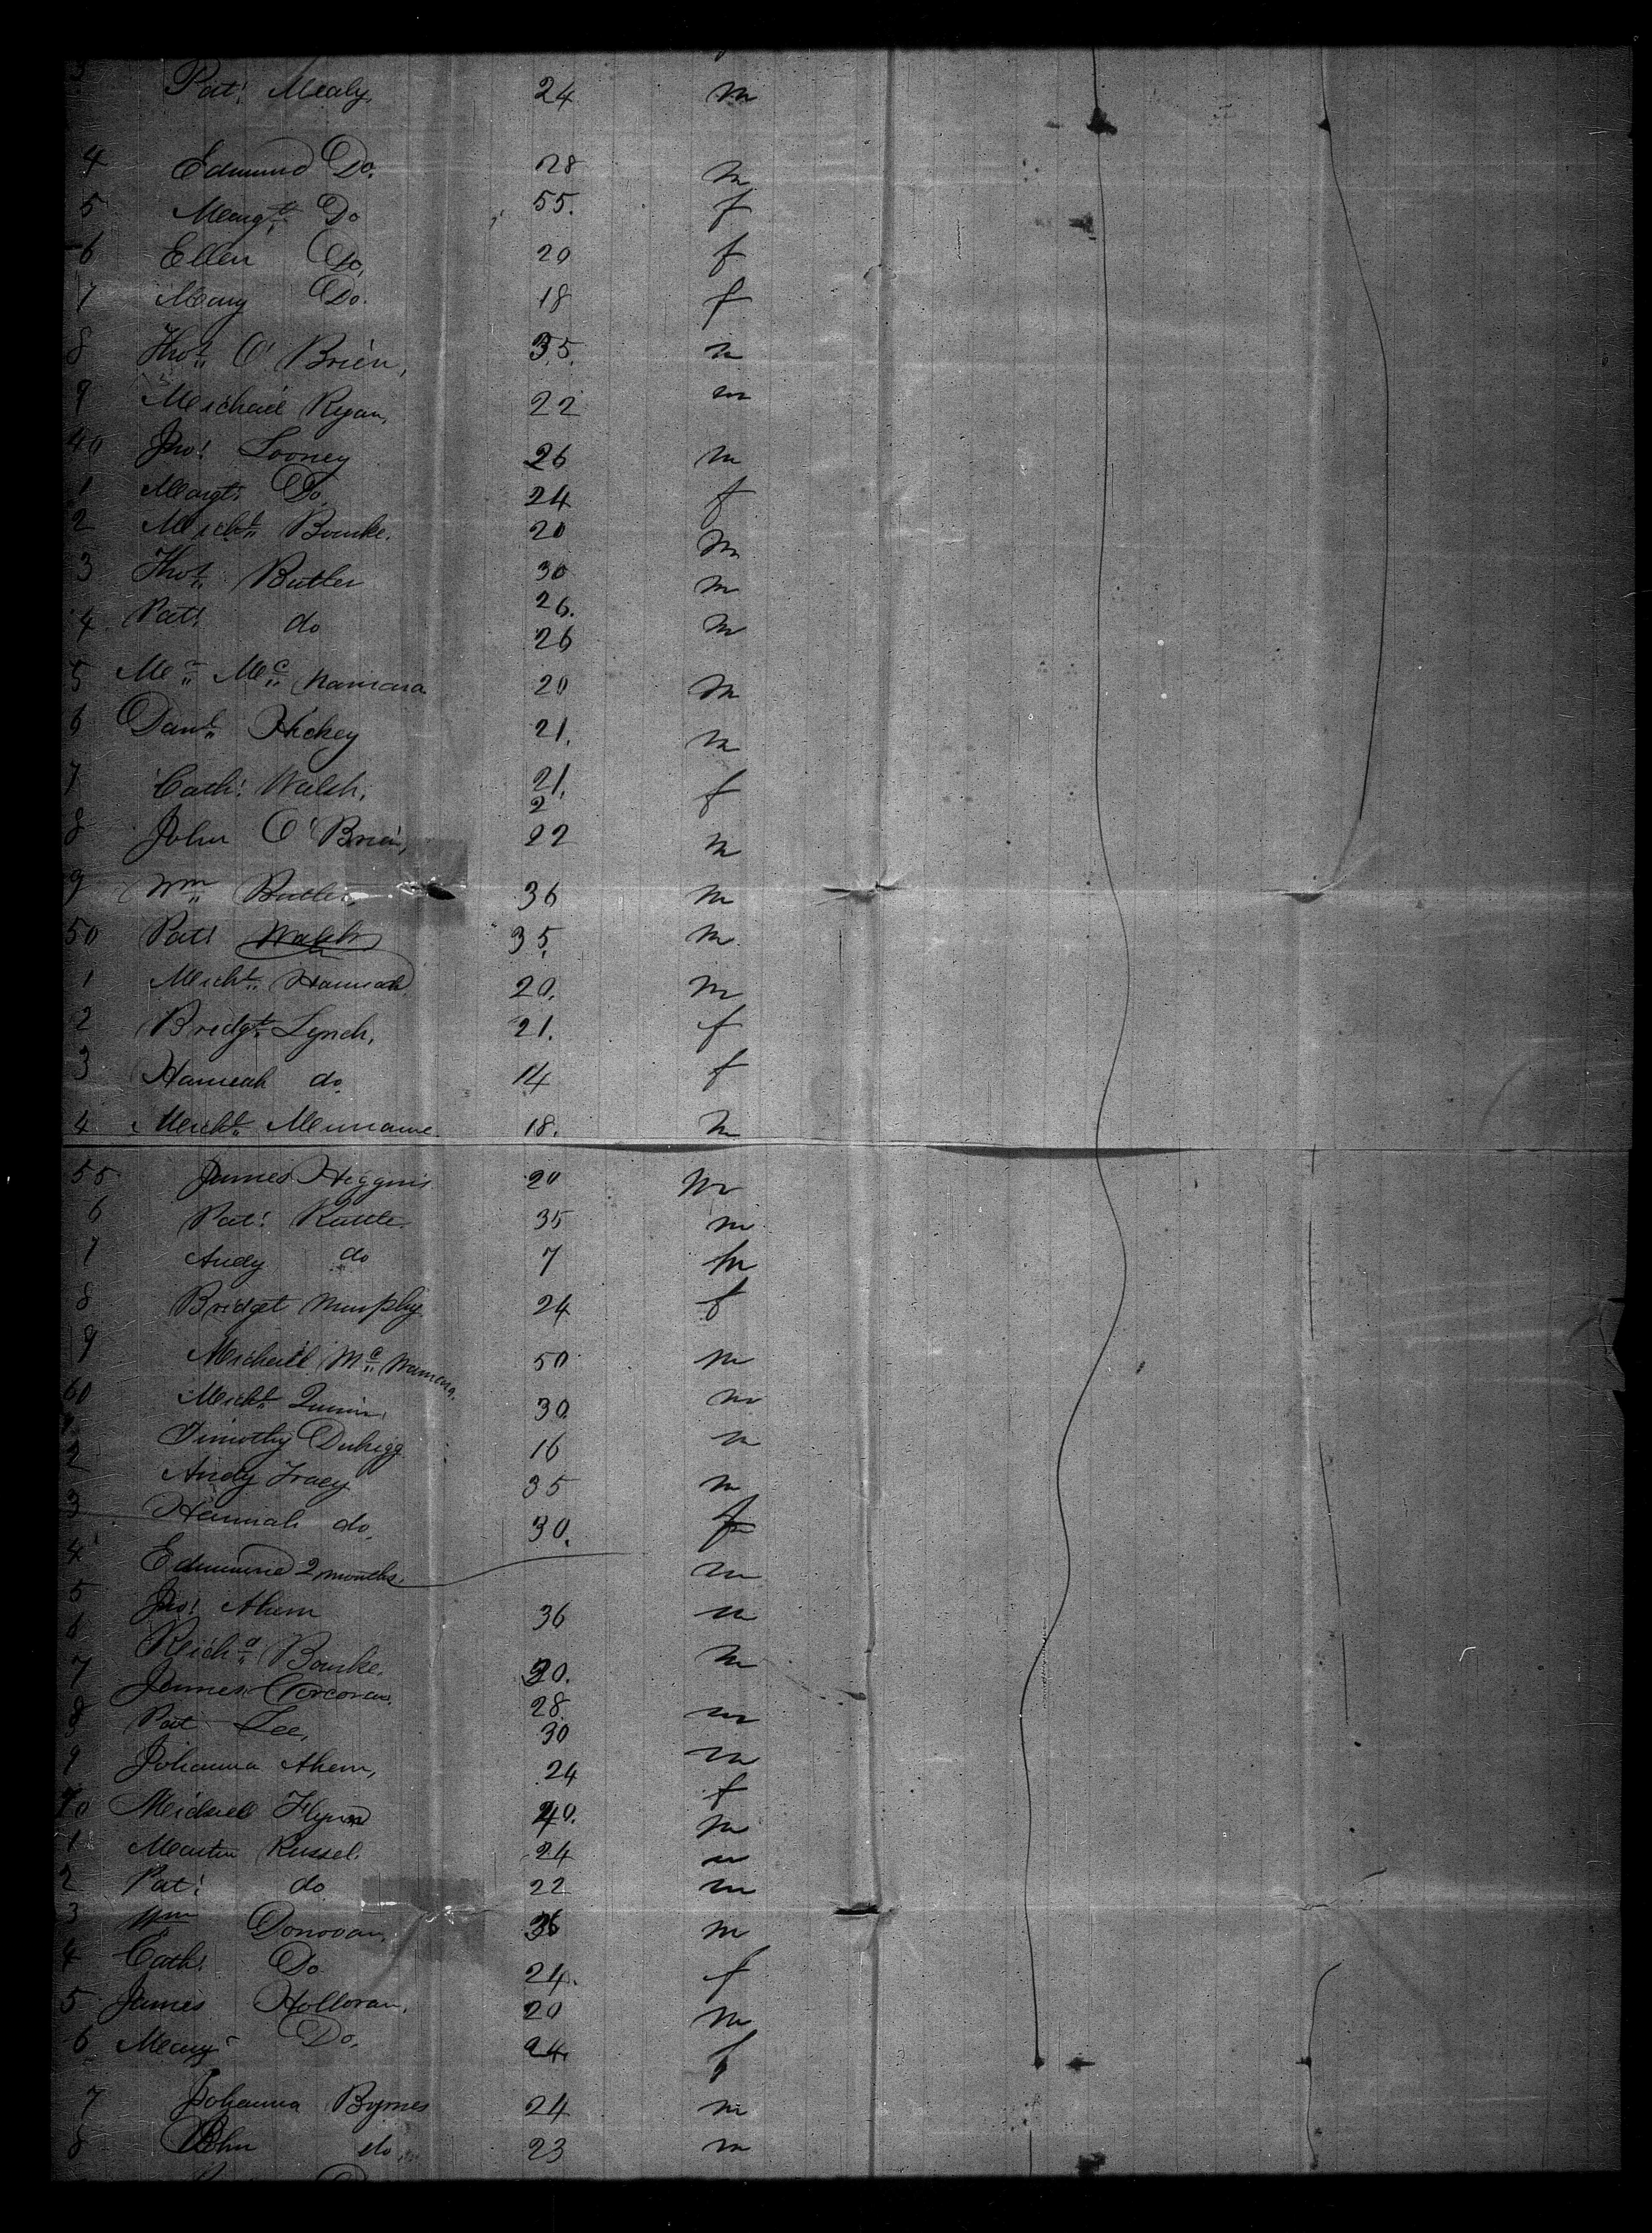 3 Pat. Mealy, 24 m
4 Edmund Do. 28 m
5 Margt. Do 55. f
6 Ellen Do, 20 f
7 Mary Do. 18 f
8 Thos. O'Brien, 35. m
9 Michael Ryan, 22 m
40 Jno. Looney 26 m
1 Margt. Do. 24 f
2 Michl. Bourke. 20 m
3 Thos. Butler 30 m
26.
4 Pat. do 26 m
5 Mc. Namara 20 m
6 Danl. Hickey 21. m
7 Cath. Walsh, 21. f
2
8 John O'Brien, 22 m
9 Wm Butler 36 m
50 Pat. Walsh 35. m
1 Michl. 20. m
2 Bridgt. Lynch, 21. f
3 Hannah do. 14 f
4 Michl. 18. m
55 James Higgins 20 m
6 Pat. 35 m
7 Andy do 7 m
8 Bridget Murphy 24 f
9 Michael Mc. Namara. 50 m
60 Michl. Quinn, 30. m
1 Timothy Duhigg 16 m
2 Andy Tracy 35 m
3 Hannah do. 30. f
4 Edmund 2 months. m
5 Jno. Ahern 36 m
6 Richd. Bourke. m
7 James Corcoran. 28. m
8 Pat Lee, 30 m
9 Johanna Ahern, 24 f
70 Michael Flynn 40. m
1 Martin Russel. 24 m
2 Pat. do 22 m
3 Wm Donovan, 36 m
4 Cath. Do 24. f
5 James Holloran, 20 m
6 Mary Do. 24. f
7 Johanna Byrnes 24 m
8 John do. 23 m